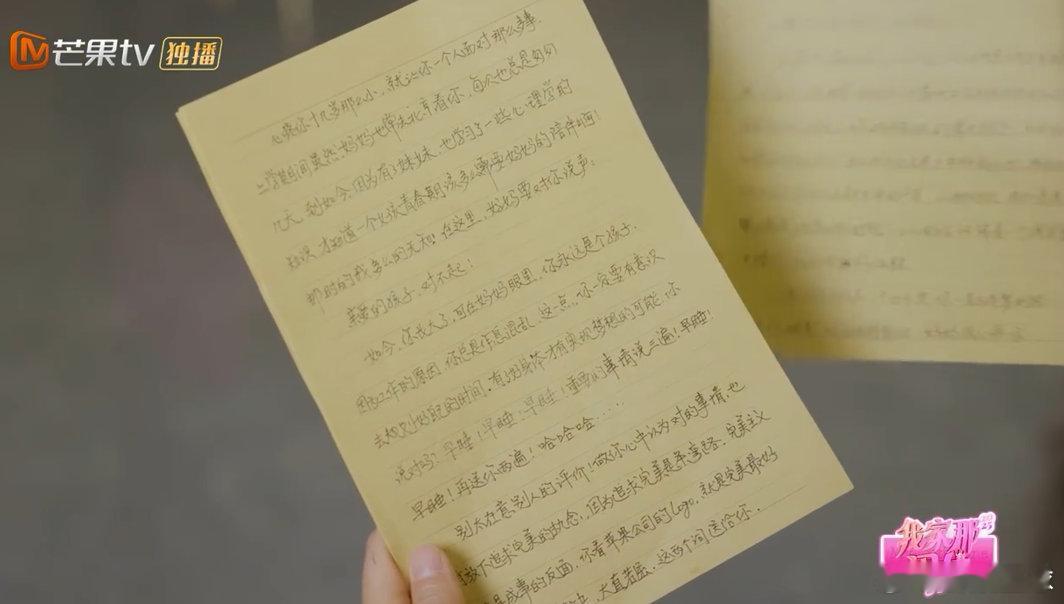 芒果tv 独播
心疼你十几岁那么小,就让你一个人面对那么多事
上学期间虽然妈妈也常去北京看你,每次也总是匆匆
几天,到如今,因为有了妹妹,也学习了一些心理学的
知识,才知道一个女孩青春期该多么需要妈妈的陪伴啊!
那时的我多么的无知!在这里,妈妈要对你说声:
亲爱的孩子,对不起!
如今,你长大了,可在妈妈眼里,你永远是个孩子.
因为工作的原因,你总是作息混乱,这一点,你一定要有意识
去规划好睡的时间,有好身体才有实现梦想的可能,你
说对吗?早睡!早睡!早睡!重要的事情说三遍,早睡!
早睡!再送你两遍!哈哈哈……
别太在意别人的评价!做你心中认为对的事情,也
放下追求完美的执念,因为追求完美是条弯路.完美主义
是成事的反面,你看苹果公司的logo,就是完美最好
大直若屈,这两个词送给你.
我家那